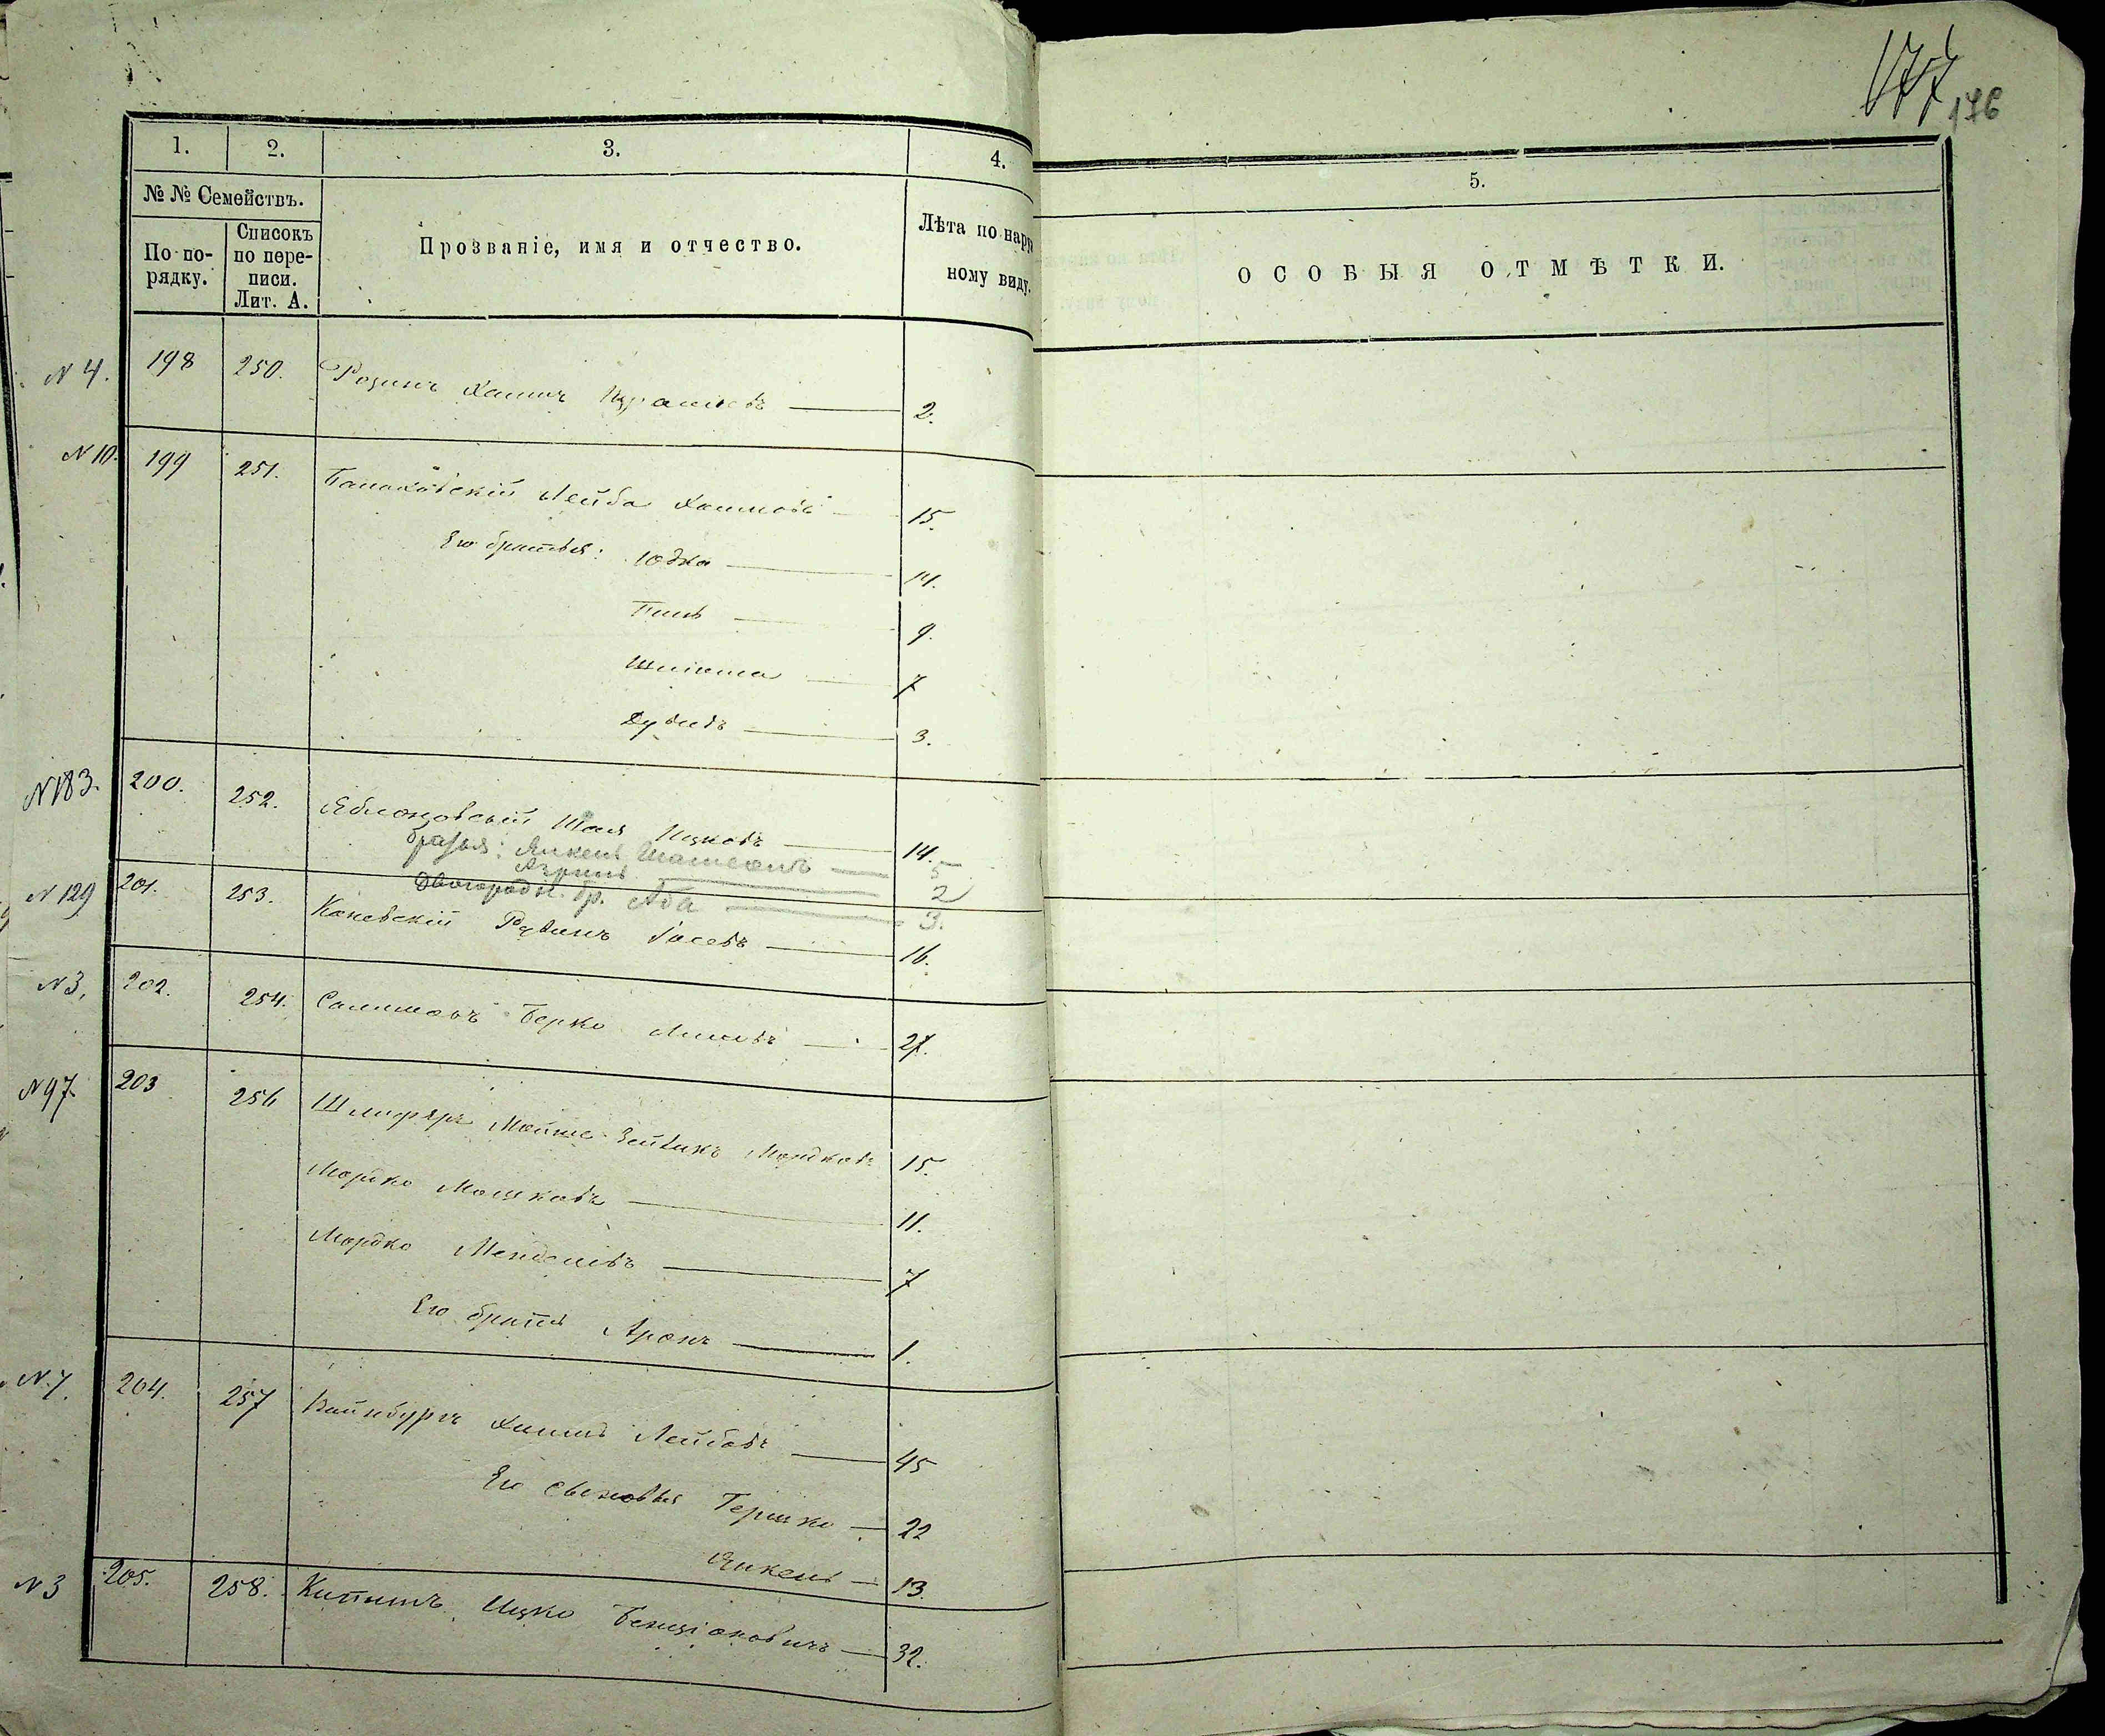 177
176
1. 2. 3. 4. 5.
№ № Семействъ.
По по-
рядку.
Списокъ
по пере-
писи.
Лит. А.
Прозваніе, имя и отчество.
Лѣта по наруж
ному виду.
ОСОБЫЯ ОТМѢТКИ.
N 4. 198 250. Розинъ Хаимъ Израилевъ 2.
N 10. 199 251. Лейба Хаимовъ 15.
Его братья: Юдка 14.
Пинь 9.
Шліома 7
Дувидъ 3.
N 183. 200. 252. Яблоновскій Шая Ицковъ 14.
братья: Янкель 5
Азриль 2
Двоюродн. бр. Аба 3.
N 129 201. 253. Каневскій Рувинъ Іосевъ 16.
N 3, 202. 254. Берко 27.
N 97. 203 256 Шлиферъ Мойше-Зейликъ Мордковъ 15.
Мордко Мошковъ 11.
Мордко Менделевъ 7
Его братъ Аронъ 1.
N 7. 204. 257 Вайнбургъ Хаимъ Лейбовъ 45
Его сыновья Гершко 22
Янкель 13.
N 3 205. 258. Ицко Бенціоновичъ 32.